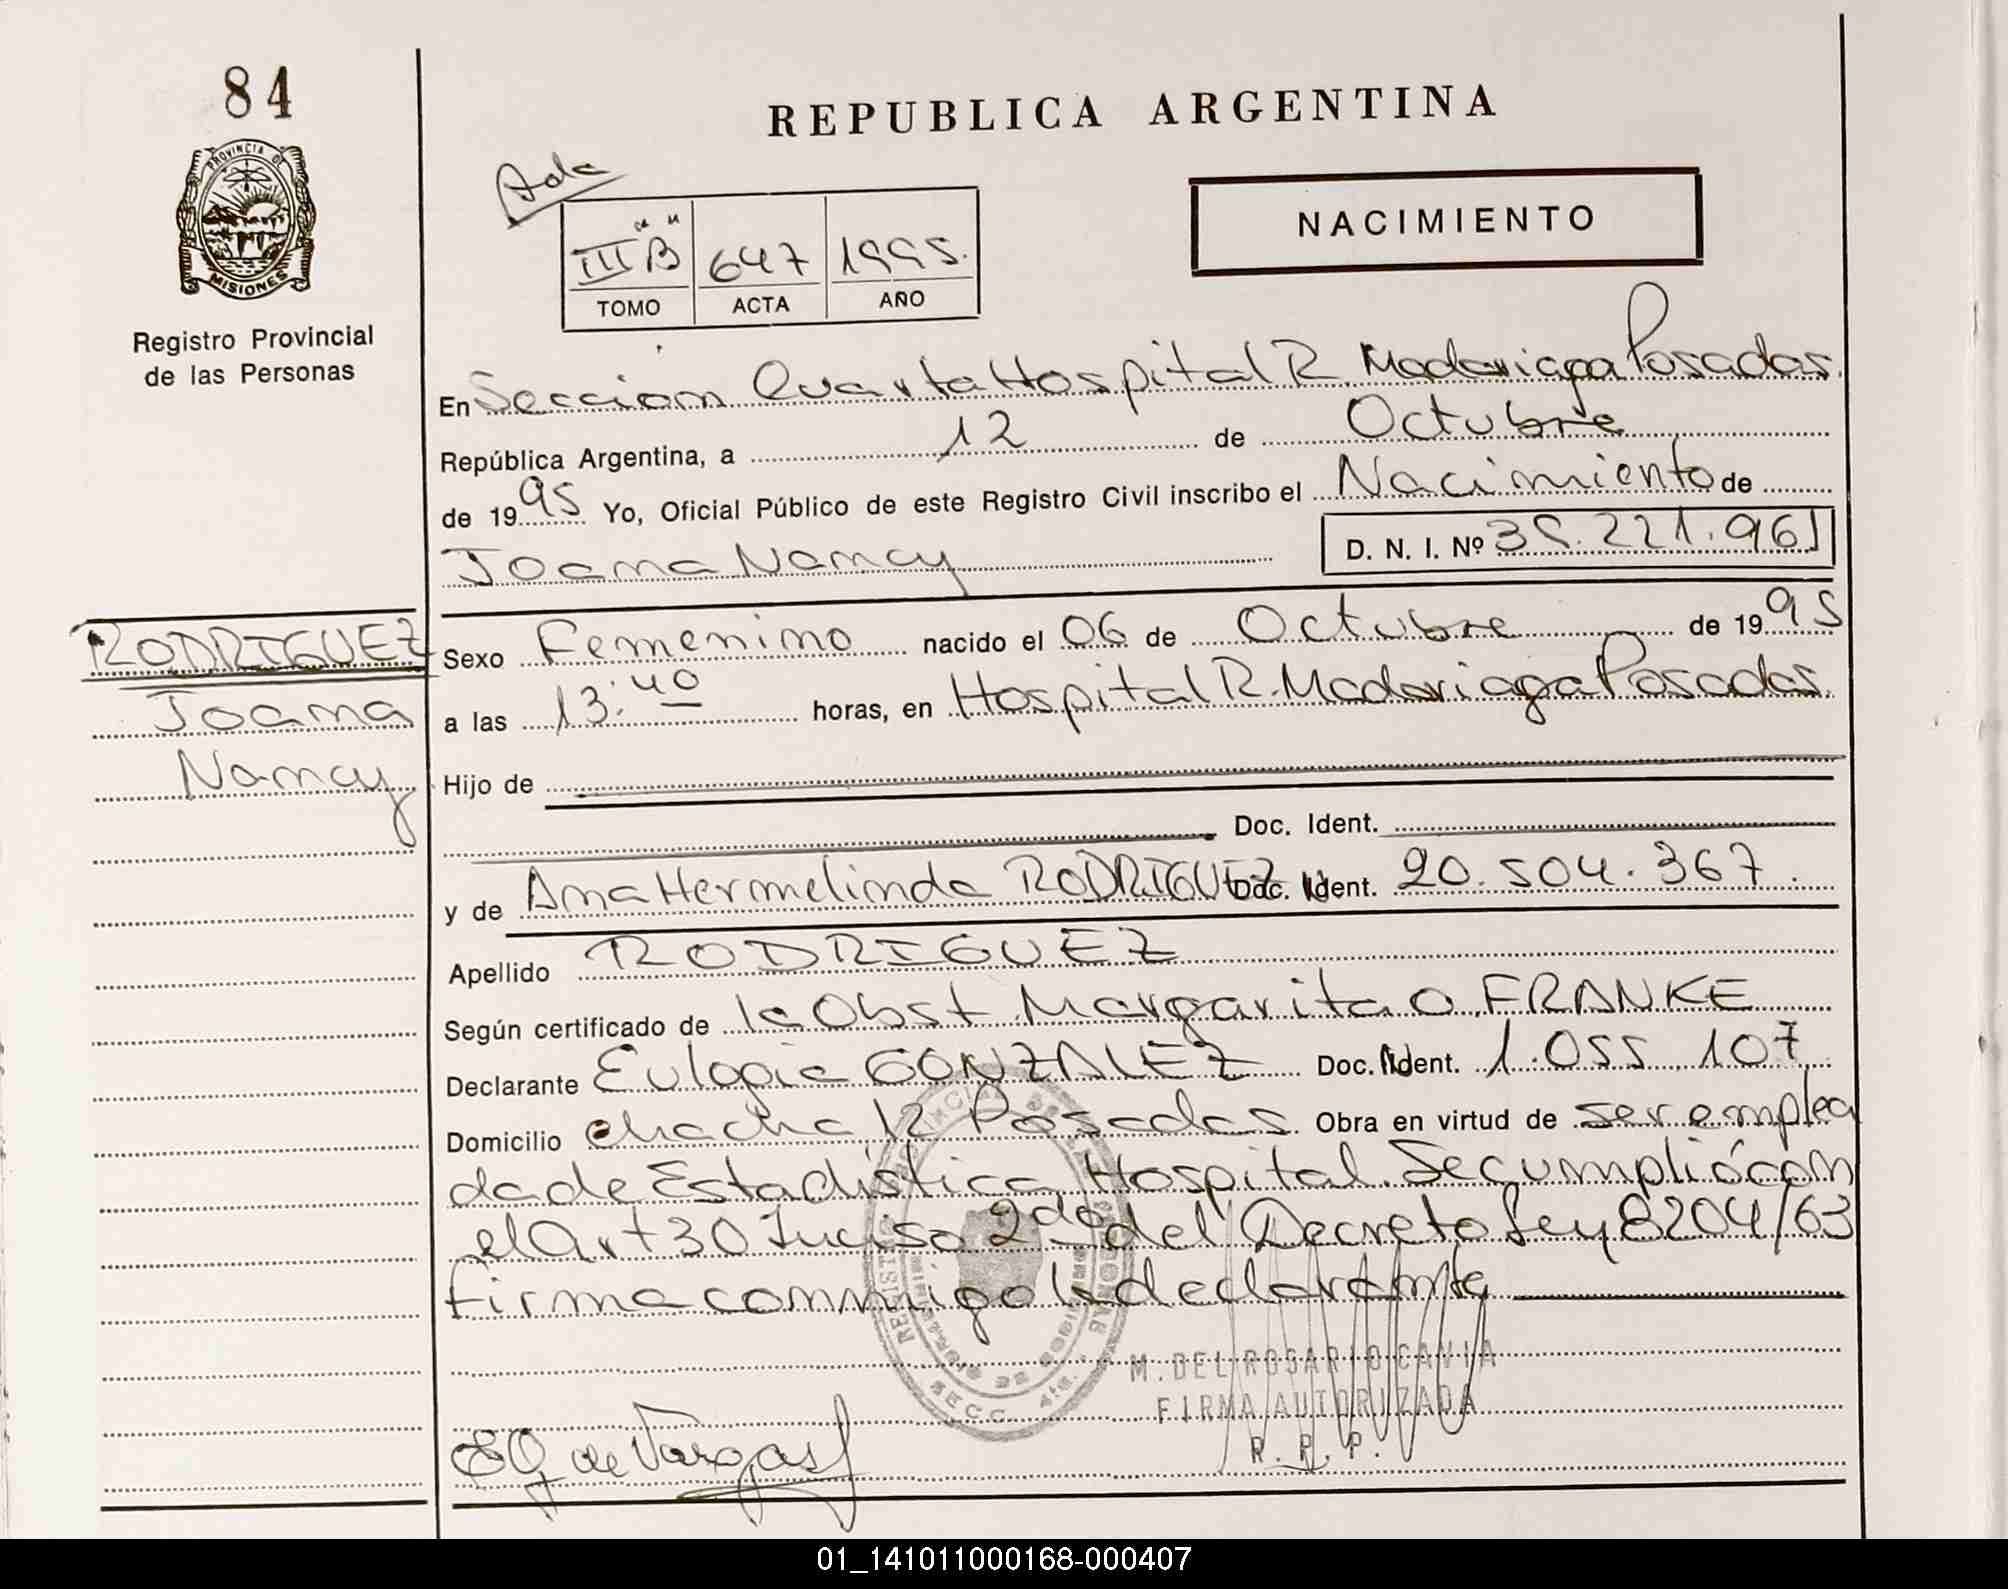 84
REPUBLICA ARGENTINA
PROVINCIA DE
MISIONES
Registro Provincial
de las Personas
Ada
III "B" 647 1995.
TOMO ACTA AÑO
NACIMIENTO
En Seccion Cuarta Hospital R. Madariaga Posadas.
República Argentina, a 12 de Octubre
de 1995 Yo, Oficial Público de este Registro Civil inscribo el Nacimiento de
Joana Nancy D. N. I. Nº 39.221.961
RODRIGUEZ
Joana
Nancy
Sexo Femenino nacido el 06 de Octubre de 1995
a las 13:40 horas, en Hospital R. Madariaga Posadas.
Hijo de
Doc. Ident.
y de Ana Hermelinda RODRIGUEZ Doc. Ident. 20.504.367.
Apellido RODRIGUEZ
Según certificado de la Obst Margarita O. FRANKE
Declarante Eulogia GONZALEZ Doc. Ident. 1.055.107
Domicilio chacha 12 Posadas. Obra en virtud de ser emplea
da de Estadística Hospital. Se cumplió con
el Art 30 Inciso 2do del Decreto Ley 8204/63
firma conmigo la declarante
M. DEL ROSARIO CAVIA
FIRMA AUTORIZADA
R. R. P.
EG de Vargas
SECC. 4ta.
01_141011000168-000407